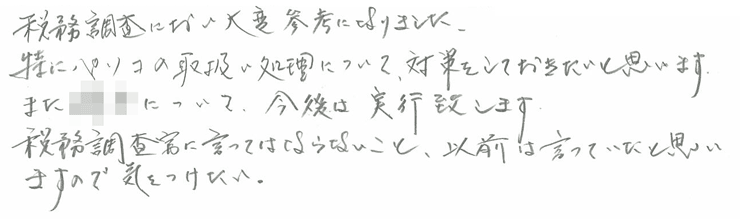 税務調査に対い大変参考になりました。
特にパソコンの取扱い処理について、対策をしておきたいと思います。
また について、今後は実行致します。
税務調査官に言ってはならないこと、以前は言っていたと思い
ますので気をつけたい。